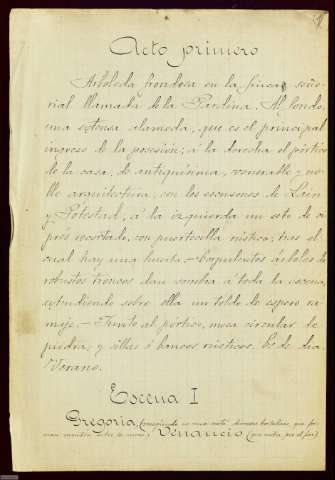 Acto primero
Arboleda frondosa en la finca seño-
rial llamada de la Pardina. Al fondo,
una extensa alameda, que es el principal
ingreso de la posesión; á la derecha el pórtico
de la casa, de antiquísima, venerable y no-
ble arquitectura, con los escusones de Lain
y Potestad, á la izquierda un seto de ci-
prés recortado, con puertecilla rústica, tras el
cual hay una huerta.- Corpulentos árboles de
robustos troncos dan sombra á toda la escena,
extendiendo sobre ella un toldo de espeso ra-
maje.- Junto al pórtico, mesa circular de
piedra, y sillas ó bancos rústicos. Es de dia
Verano.
Escena I
Gregoria, en una mata diversas hortalizas, que for-
man ; Venancio (que entra por el foro)